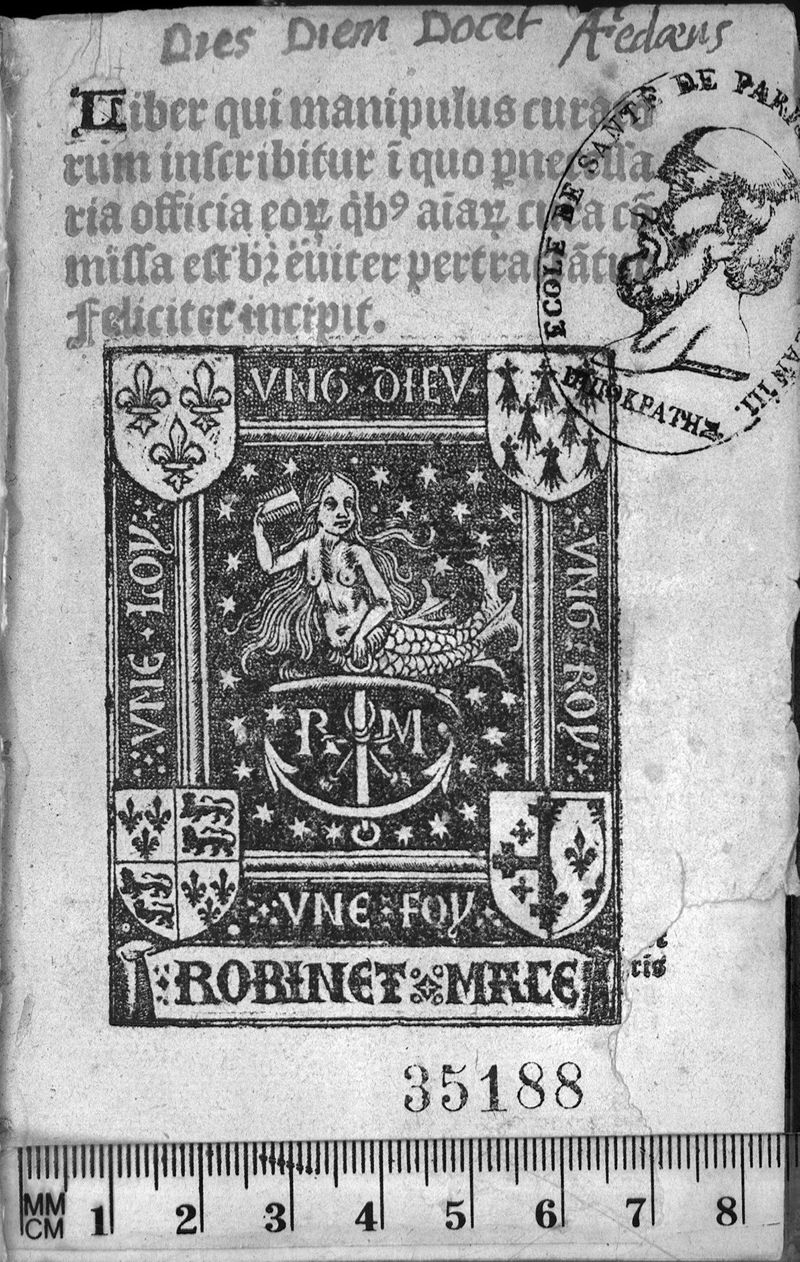 Dies Diem Docet
Liber qui manipulus curato
rum inscribitur ī quo ꝑnecessa
ria officia eoꝝ q̇bꝰ aīaꝝ cura cō
missa est bꝛeuiter pertractātur
Feliciter incipit.
ECOLE DE SANTE DE PARIS
AN III.
ΙΠΠΟΚΡΑΤΗΣ
VNG DIEV
VNE LOY
VNG ROY
R M
VNE FOY
ROBINET MACE
ris
35188
MM
CM 1 2 3 4 5 6 7 8